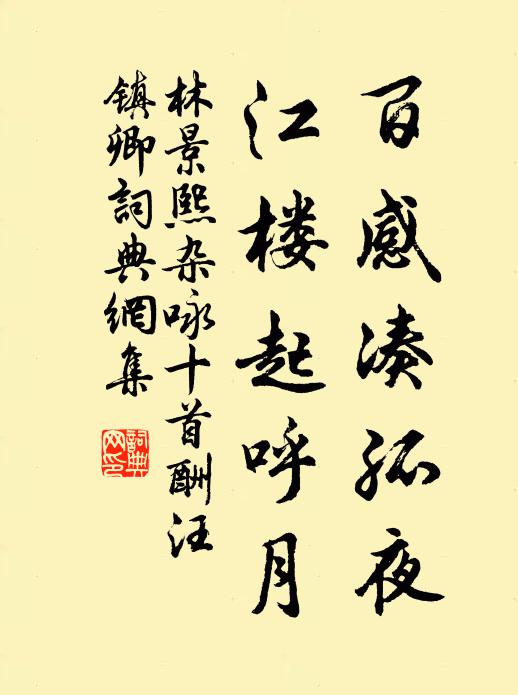 百感凑孤夜
江楼起呼月
林景熙杂咏十首酬汪
镇卿詞典網集
詞典
网印